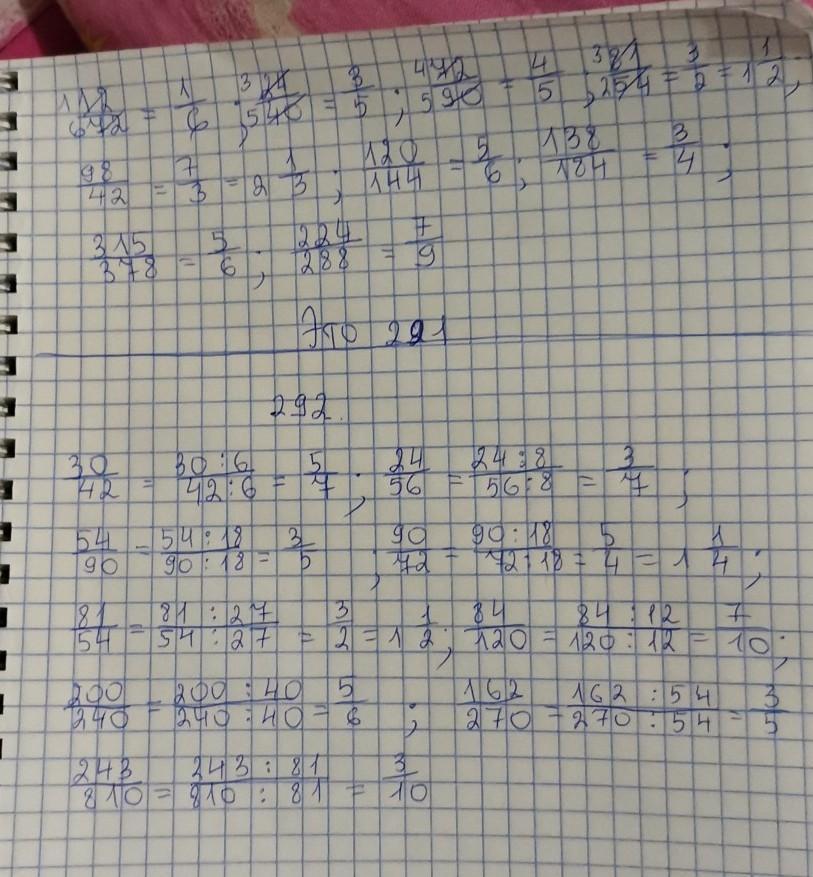 1 12/672 = 1/6 ; 3 24/540 = 3/5 ; 4 72/590 = 4/5 ; 3 81/254 = 3/2 = 1 1/2 ;
98/42 = 7/3 = 2 1/3 ; 120/144 = 5/6 ; 138/184 = 3/4 ;
315/378 = 5/6 ; 224/288 = 7/9
Это 291
292.
30/42 = 30:6/42:6 = 5/7 ; 24/56 = 24:8/56:8 = 3/7 ;
54/90 = 54:18/90:18 = 3/5 ; 90/72 = 90:18/72:18 = 5/4 = 1 1/4 ;
81/54 = 81:27/54:27 = 3/2 = 1 1/2 ; 84/120 = 84:12/120:12 = 7/10 ;
200/240 = 200:40/240:40 = 5/6 ; 162/270 = 162:54/270:54 = 3/5
243/810 = 243:81/810:81 = 3/10